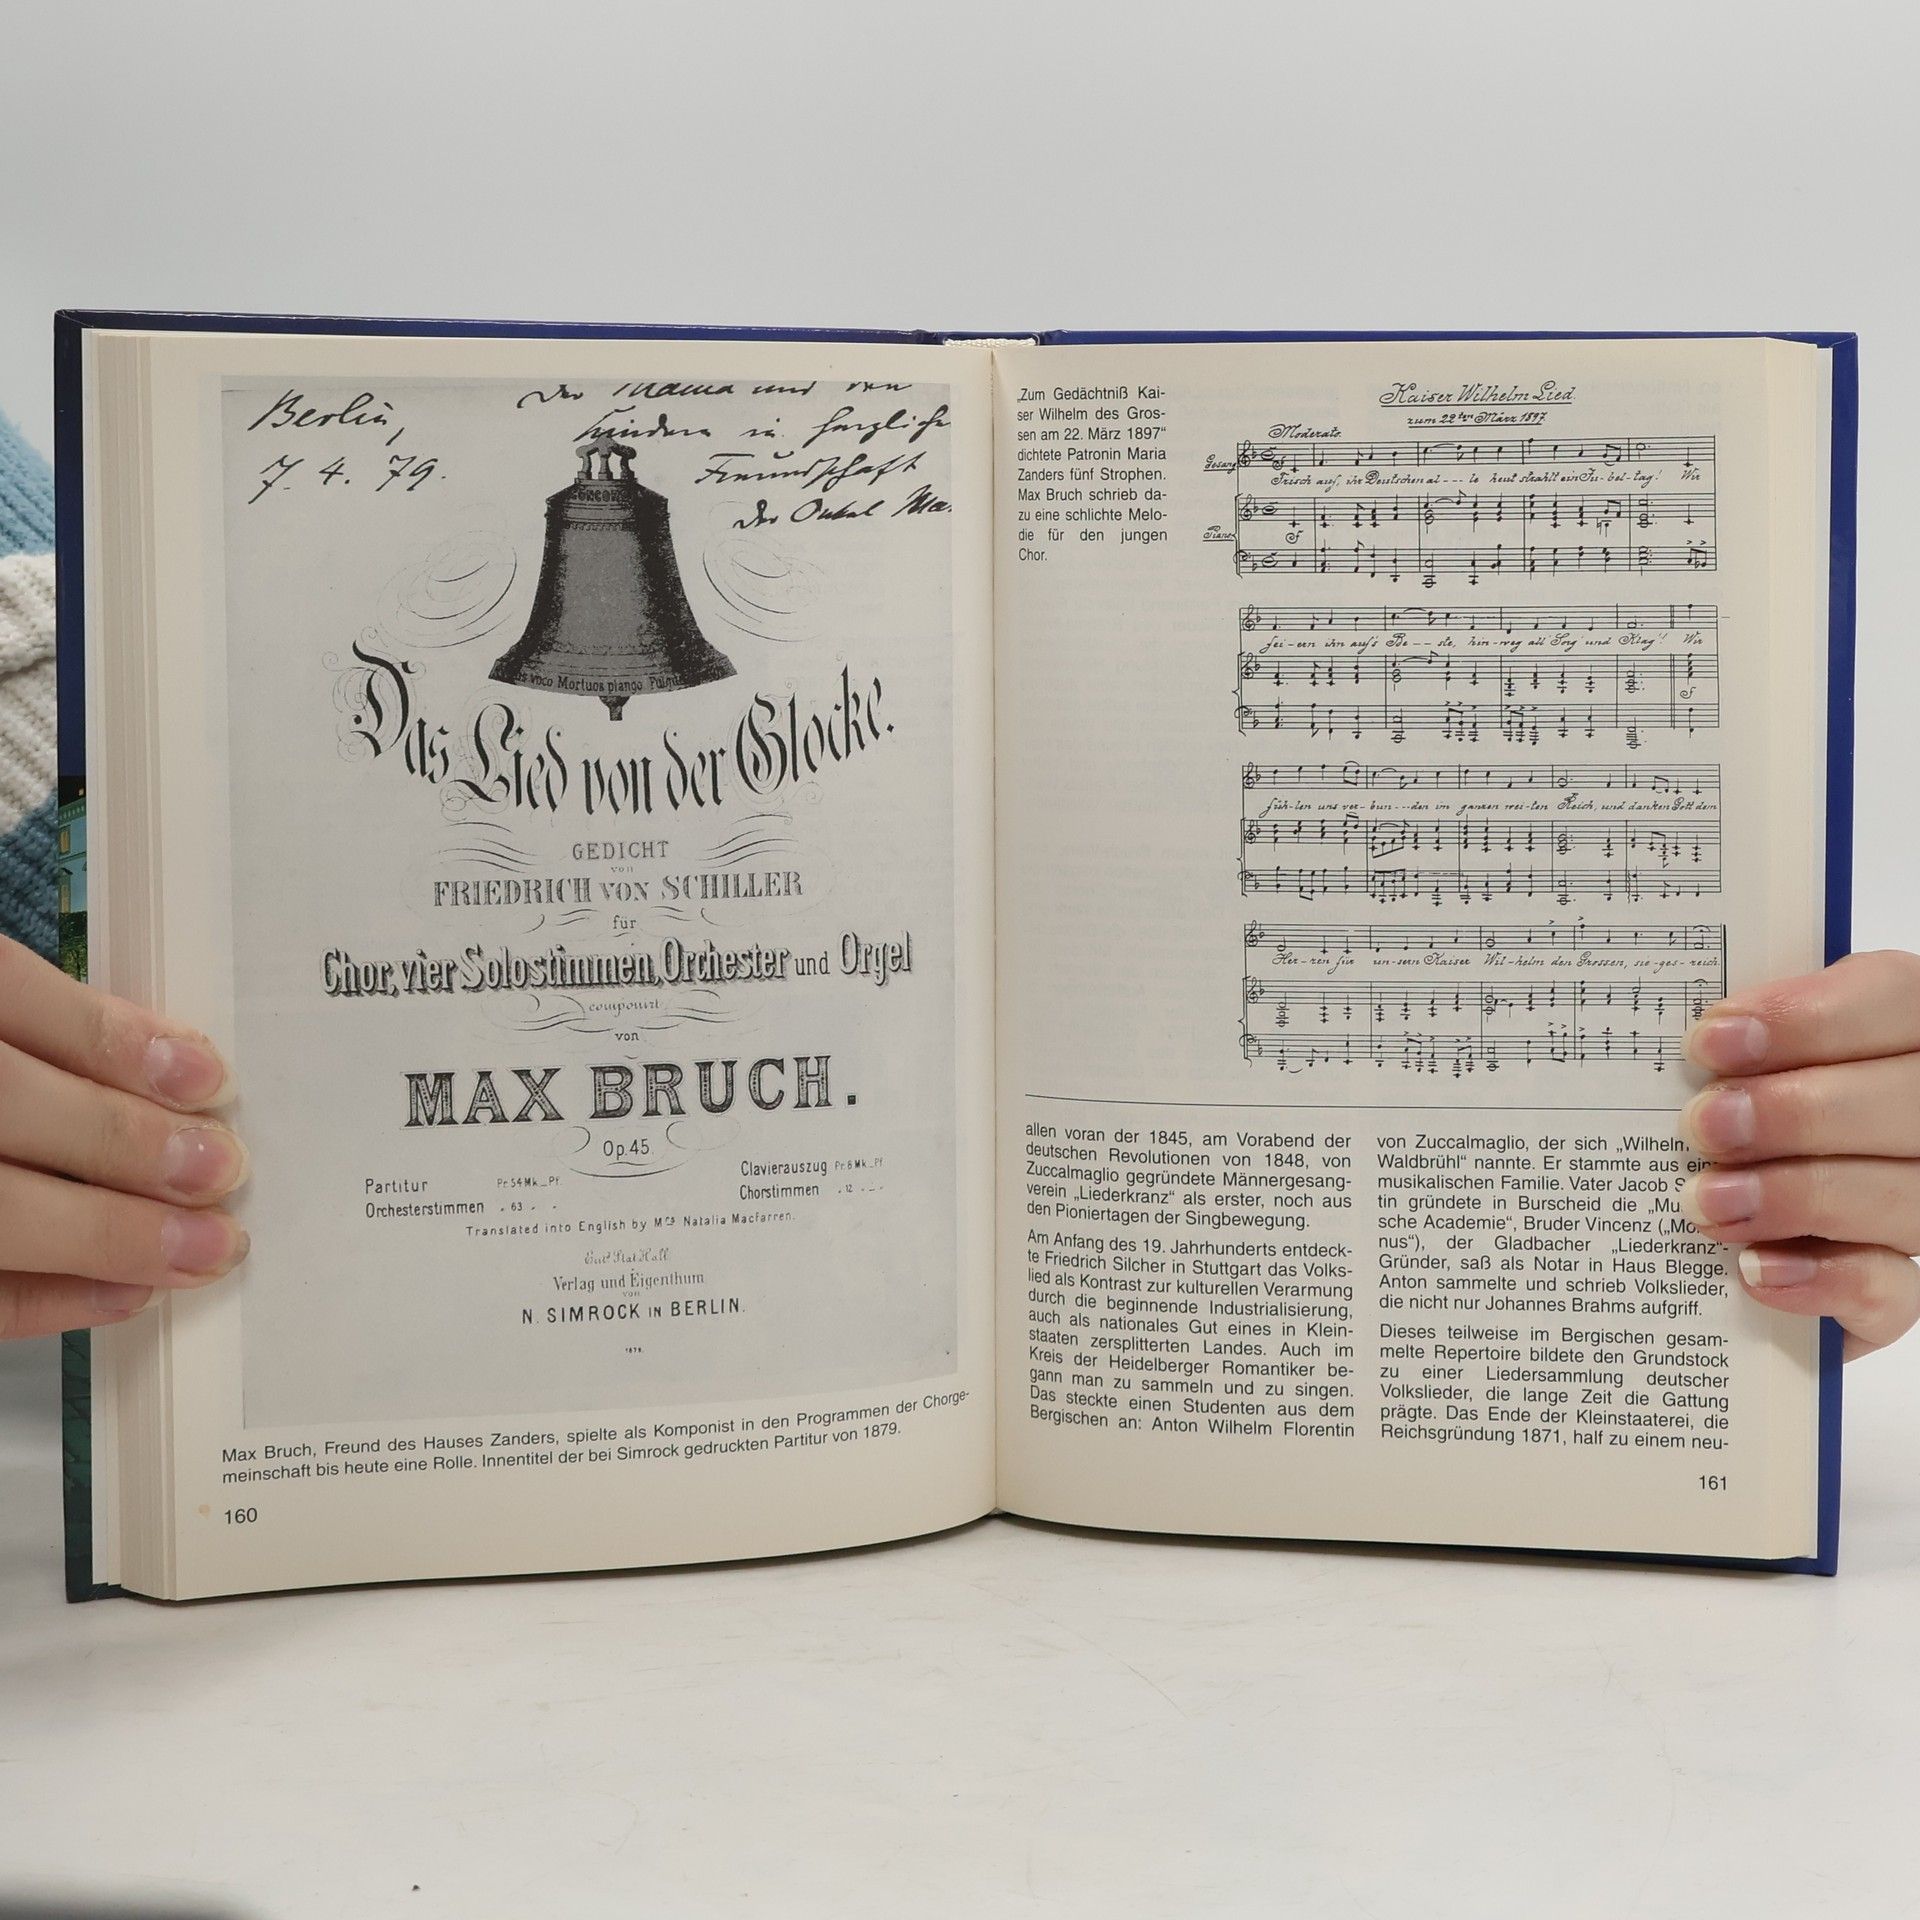 Berlin,
7. 4. 79.
Der Mama und den
Kindern in herzliche
Freundschaft
der Onkel Ma
CONCOR
voco Mortuos plango Fulgu
Das Lied von der Glocke.
GEDICHT
von
FRIEDRICH VON SCHILLER
für
Chor, vier Solostimmen, Orchester und Orgel
componirt
von
MAX BRUCH.
Op. 45.
Partitur Pr. 54 Mk _ Pf.
Orchesterstimmen „ 63 „ _ „
Clavierauszug Pr. 6 Mk _ Pf
Chorstimmen „ 12 „ _ „
Translated into English by Mrs Natalia Macfarren.
Entd Stat. Hall
Verlag und Eigenthum
von
N. SIMROCK IN BERLIN.
1879.
Max Bruch, Freund des Hauses Zanders, spielte als Komponist in den Programmen der Chorge-
meinschaft bis heute eine Rolle. Innentitel der bei Simrock gedruckten Partitur von 1879.
160
„Zum Gedächtniß Kai-
ser Wilhelm des Gros-
sen am 22. März 1897“
dichtete Patronin Maria
Zanders fünf Strophen.
Max Bruch schrieb da-
zu eine schlichte Melo-
die für den jungen
Chor.
Kaiser Wilhelm Lied.
zum 22ten März 1897.
Moderato.
Gesang
Frisch auf, ihr Deutschen al - - - le heut strahlt ein Ju - bel - tag! Wir
Piano
fei - ern ihn aufs Be - - - ste, hin - weg all Sorg und Klag! Wir
füh - len uns ver - bun - - - den im ganzen wei - ten Reich, und danken Gott dem
Her - ren für un - sern Kaiser Wil - helm den Grossen, sie - ges - reich.
allen voran der 1845, am Vorabend der
deutschen Revolutionen von 1848, von
Zuccalmaglio gegründete Männergesang-
verein „Liederkranz“ als erster, noch aus
den Pioniertagen der Singbewegung.
Am Anfang des 19. Jahrhunderts entdeck-
te Friedrich Silcher in Stuttgart das Volks-
lied als Kontrast zur kulturellen Verarmung
durch die beginnende Industrialisierung,
auch als nationales Gut eines in Klein-
staaten zersplitterten Landes. Auch im
Kreis der Heidelberger Romantiker be-
gann man zu sammeln und zu singen.
Das steckte einen Studenten aus dem
Bergischen an: Anton Wilhelm Florentin
von Zuccalmaglio, der sich „Wilhelm
Waldbrühl“ nannte. Er stammte aus
musikalischen Familie. Vater Jacob
tin gründete in Burscheid die
sche Academie“, Bruder Vincenz
nus“), der Gladbacher „Liederkranz“-
Gründer, saß als Notar in Haus Blegge.
Anton sammelte und schrieb Volkslieder,
die nicht nur Johannes Brahms aufgriff.
Dieses teilweise im Bergischen gesam-
melte Repertoire bildete den Grundstock
zu einer Liedersammlung deutscher
Volkslieder, die lange Zeit die Gattung
prägte. Das Ende der Kleinstaaterei, die
Reichsgründung 1871, half zu einem neu-
161